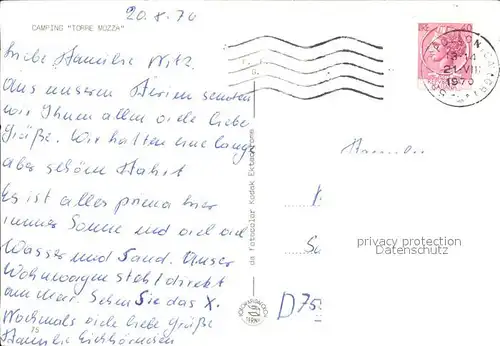 20.8.70
CAMPING "TORRE MOZZA"
Liebe Familie Witz.
Aus unseren Ferien senden
wir Ihnen allen viele liebe
Grüße. Wir hatten eine lange
aber schöne Fahrt
Es ist alles prima hier
immer Sonne und viel viel
Wasser und Sand. Unser
Wohnwagen steht direkt
am Meer. Sehen Sie das X.
Nochmals viele liebe Grüße
Familie
75
da Fotocolor Kodak Ektachrome
13-14
21.VIII
1970
Familie
D 75
privacy protection
Datenschutz